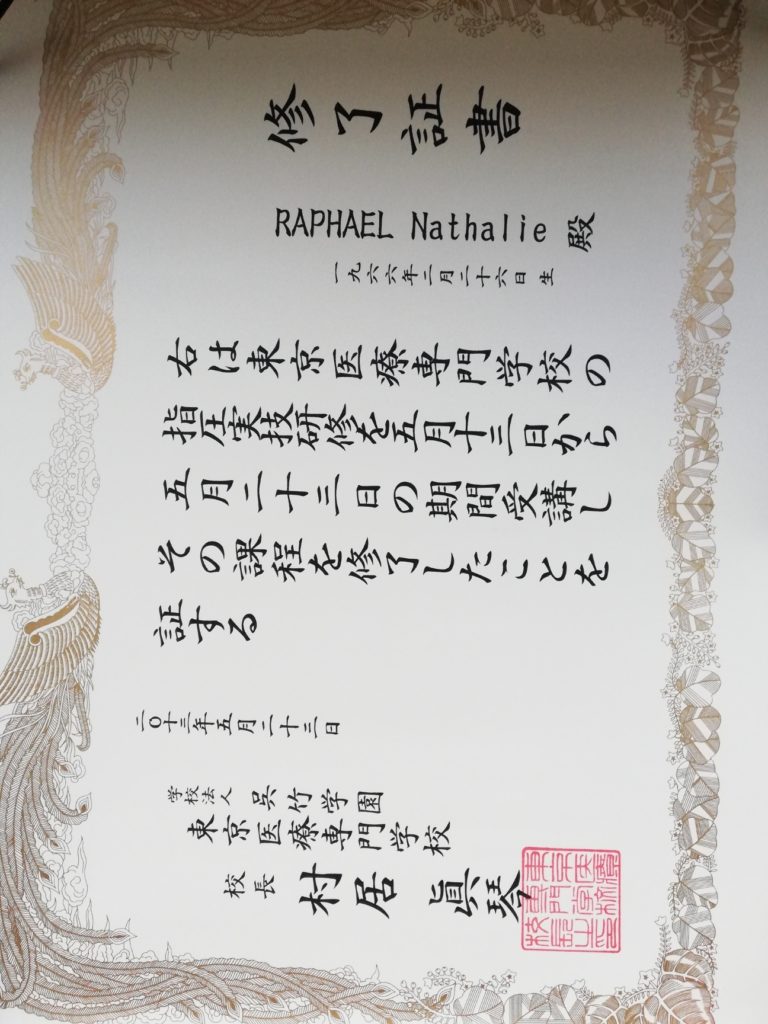 修了証書
RAPHAEL Nathalie 殿
一九六六年二月二十六日 生
右は東京医療専門学校の
指圧実技研修を五月十三日から
五月二十三日の期間受講し
その課程を修了したことを
証する
二〇十三年五月二十三日
学校法人 呉竹学園
東京医療専門学校
校長 村居 眞琴
東京医療
専門学校
校長之印